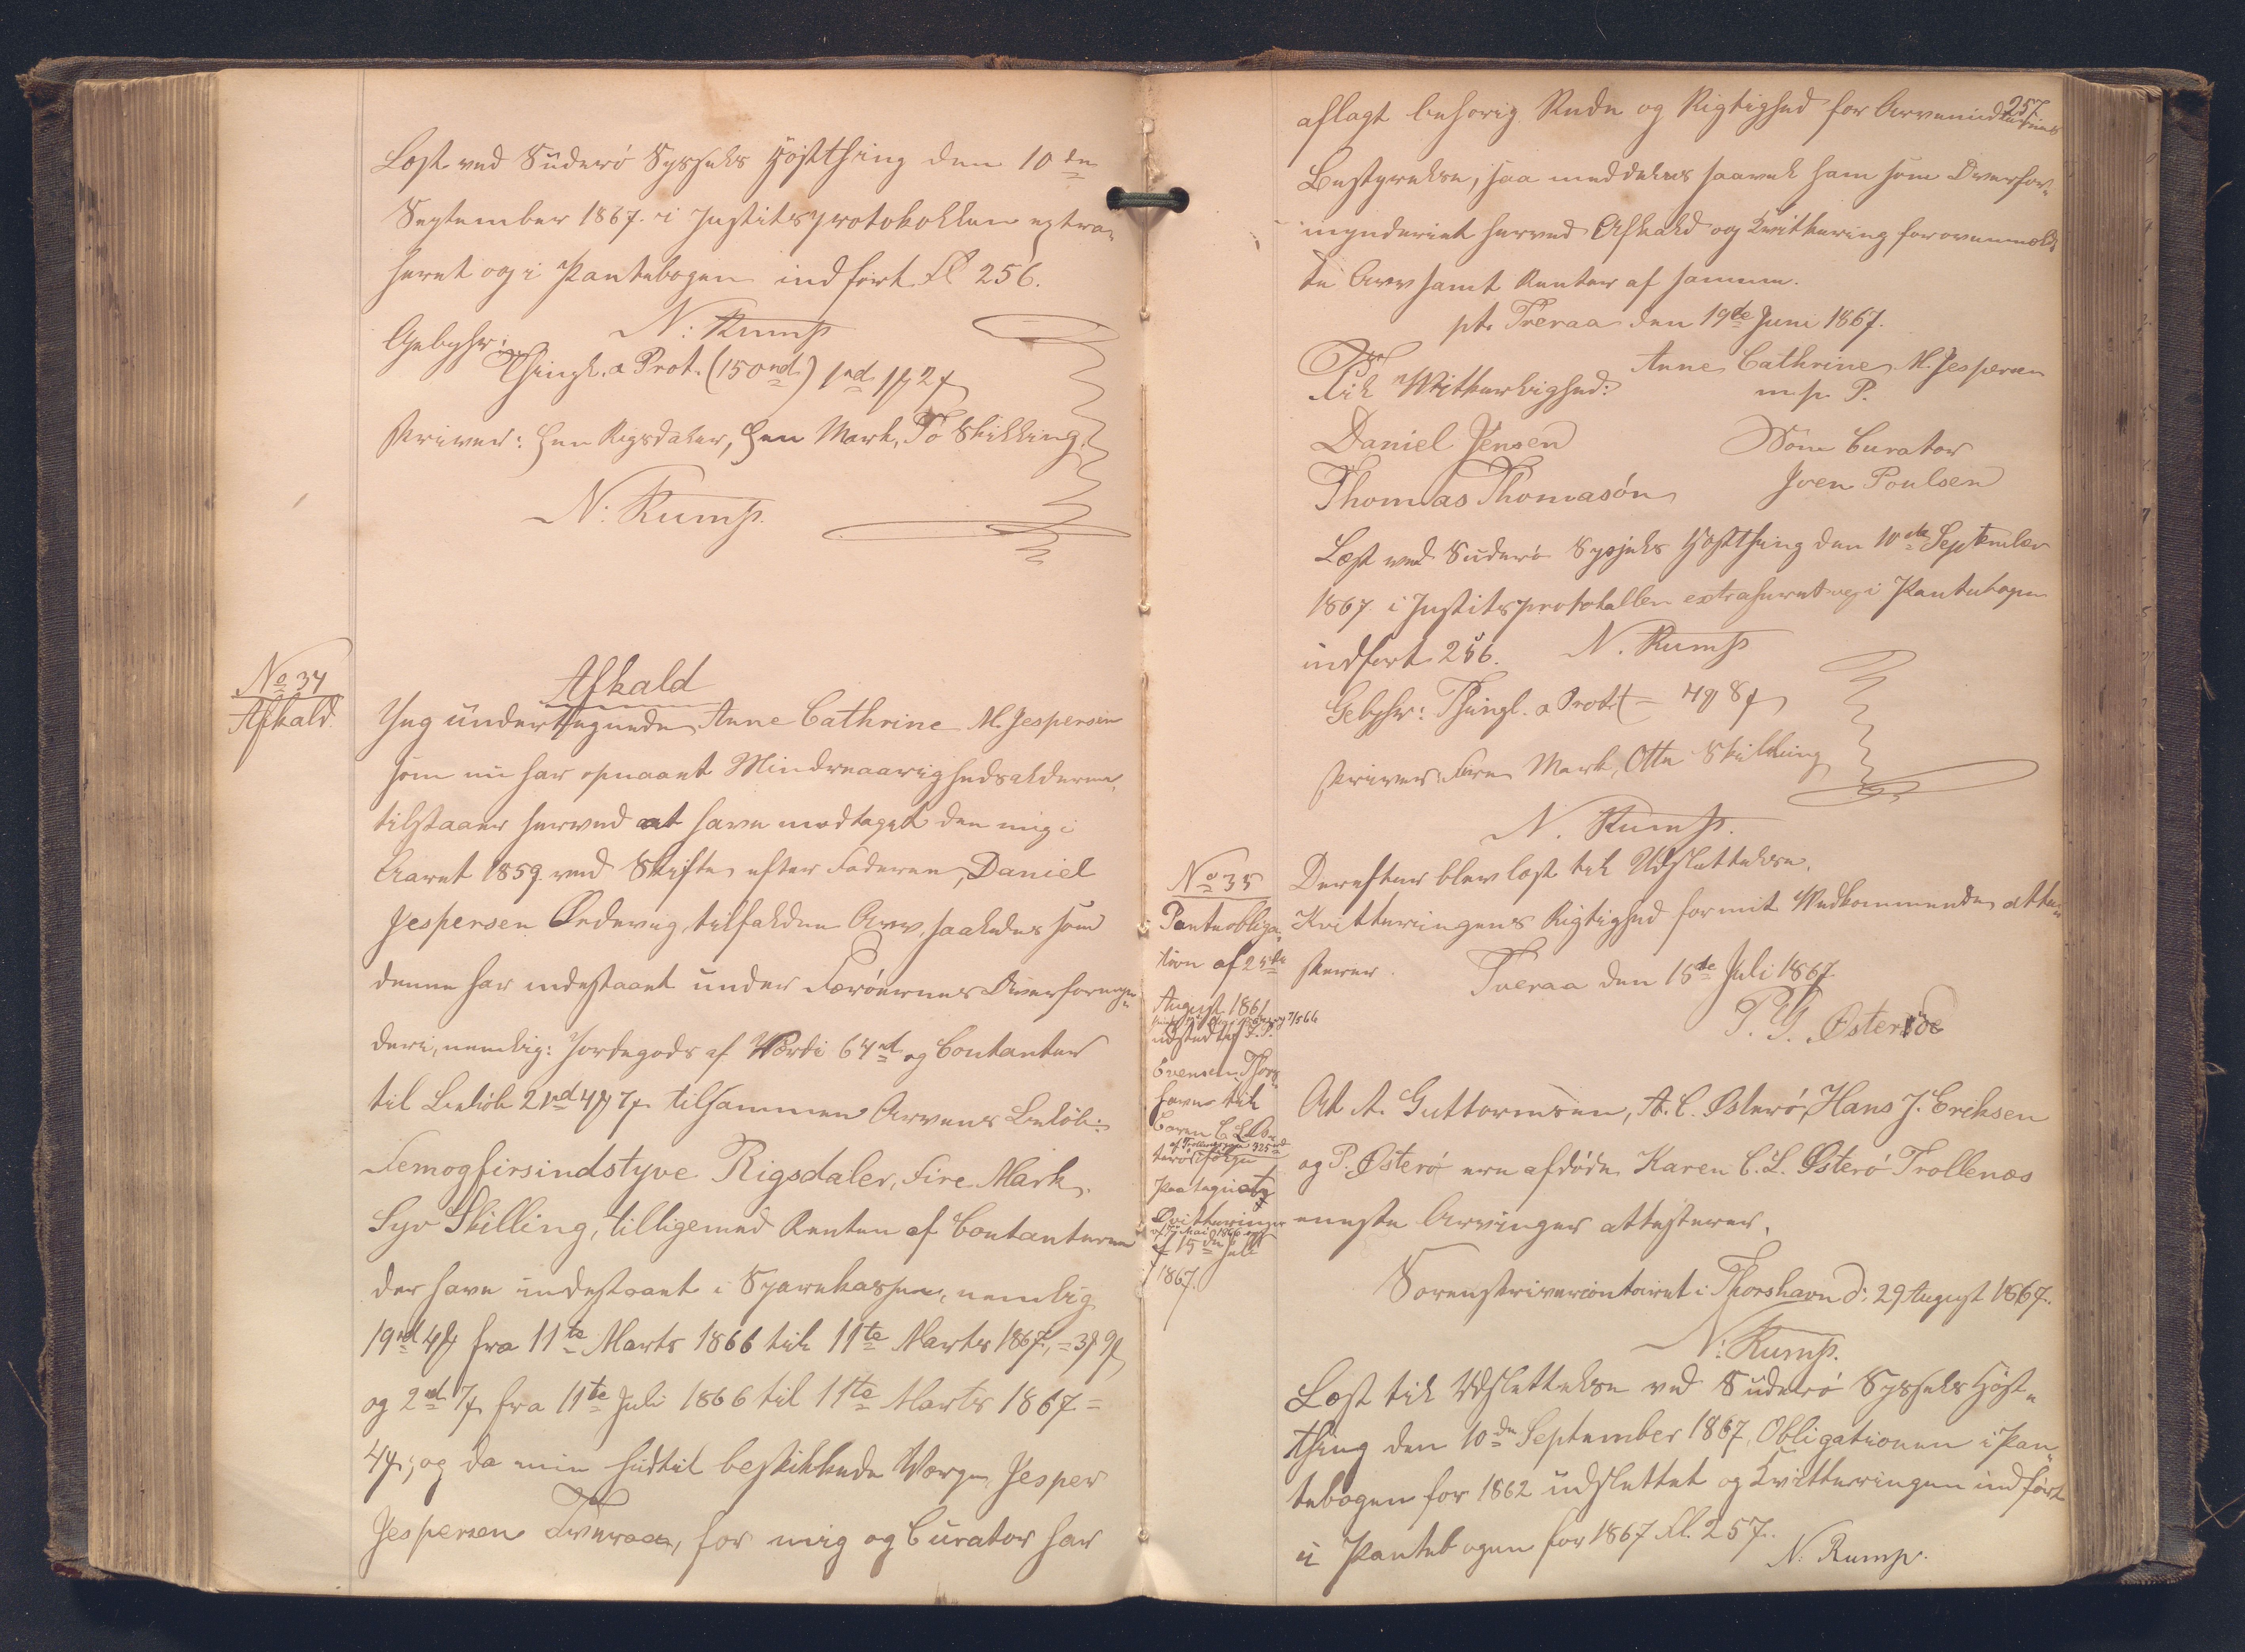 Læst ved Süderö Syssels Høstthing den 10de
September 1867. i Justitsprotokollen extra-
heret og i Pantebogen indført Fol 256.
N: Rump
Gebyhr:
Thingl. a Prot. (150rd) 1rd 1 mk 2 s
skriver: Een Rigsdaler, Een Mark, To Skilling.
N: Rump.
No 34
Afkald.
Afkald
Jeg undertegnede Anne Cathrine M. Jespersen
som nu har opnaaet Mindreaarighedsalderen,
tilstaaer herved at have modtaget den mig i
Aaret 1859 ved Skifte efter Faderen, Daniel
Jespersen Ördevig tilfaldne Arv, saaledes som
denne har indestaaet under Færöernes Overformyn-
deri, nemlig: Jordegods af Værdi 64rd og Contanter
til Belöb 21rd 4 mk 7 s tilsammen Arvens Belöb:
Femogfirsindstyve Rigsdaler, Fire Mark,
Syv Skilling, tilligemed Renten af Contanterne
der have indestaaet i Sparekassen, nemlig
19rd 4 mk fra 11te Marts 1866 til 11te Marts 1867, = 3 mk 9 s
og 2rd 7 s fra 11te Juli 1866 til 11te Marts 1867 =
4 s; og da min hidtil beskikkede Værge, Jesper
Jespersen Tveraa, for mig og Curator har
257.
aflagt behørig Rede og Rigtighed for Arvemidlernes
Bestyrelse, saa meddeles saavel ham som Overfor-
mynderiet herved Afkald og Kvittering for ovenmeld-
te Arv samt Renter af samme.
pt. Tveraa den 19de Juni 1867.
Anne Cathrine M. Jespersen
m. p. P.
Til Vitterlighed:
Daniel Jensen
Som Curator
Thomas Thomasön
Joen Poulsen
Læst ved Suderö Syssels Høstthing den 10de September
1867 i Justitsprotokollen extraheret og i Pantebogen
indført 256. N. Rump
Gebyhr: Thingl. a Prot. = 4 mk 8 s
skriver: Fire Mark, Otte Skilling
N. Rump.
No 35
Panteobliga-
tion af 24de
August 1861
udstedt af P. P.
Evensen, Thors
havn til
Caren C. L. Ös-
terö
Paategnet
Qvitteringer
af 15de Juli
1867.
Derefter blev læst til Udslettelse.
Kvitteringens Rigtighed for mit Vedkommende atte-
sterer.
Tveraa den 15de Juli 1867
P. G. Østeröe
At A. Guttormsen, A. C. Østerö, Hans J. Eriksen
og P. Østerö ere afdöde Karen C. L. Østerö Trollenæs
eneste Arvinger attesteres.
Sorenskrivercontoiret i Thorshavn d: 29 August 1867.
N: Rump.
Læst til Udslettelse ved Suderö Syssels Høst-
thing den 10de September 1867. Obligationen i Pan-
tebogen for 1862 udslettet og Kvitteringen indført
i Pantebogen for 1867 Fol. 257.
N: Rump.